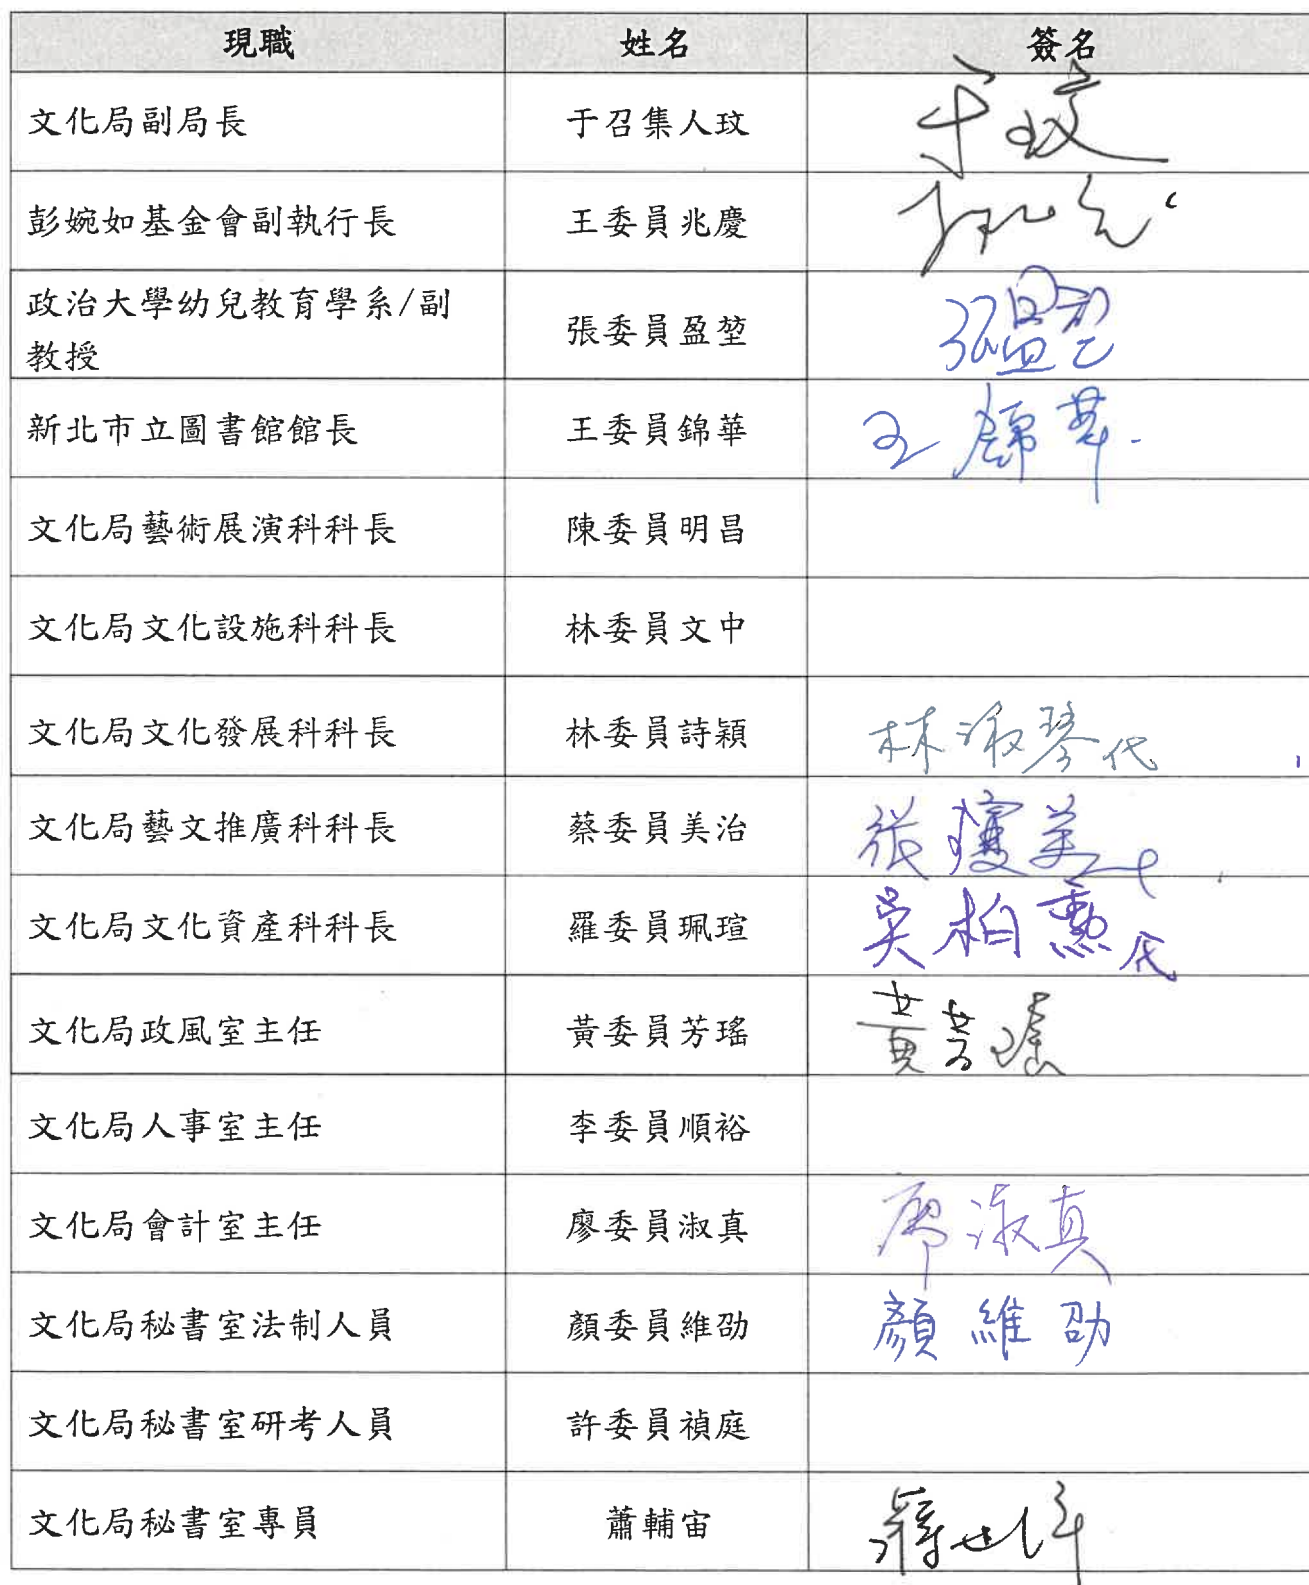 現職 姓名 簽名
文化局副局長 于召集人玟 于玟
彭婉如基金會副執行長 王委員兆慶
政治大學幼兒教育學系/副
教授 張委員盈堃 張盈堃
新北市立圖書館館長 王委員錦華 王錦華
文化局藝術展演科科長 陳委員明昌
文化局文化設施科科長 林委員文中
文化局文化發展科科長 林委員詩穎 林淑琴代
文化局藝文推廣科科長 蔡委員美治 張瓊美代
文化局文化資產科科長 羅委員珮瑄 吳柏勳代
文化局政風室主任 黃委員芳瑤 黃芳瑤
文化局人事室主任 李委員順裕
文化局會計室主任 廖委員淑真 廖淑真
文化局秘書室法制人員 顏委員維劭 顏維劭
文化局秘書室研考人員 許委員禎庭
文化局秘書室專員 蕭輔宙